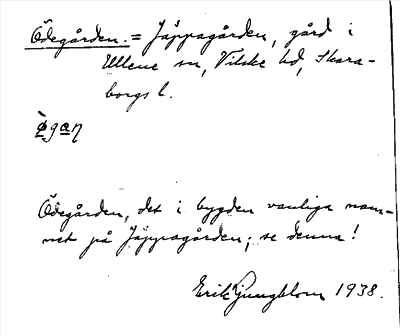 Ödegården. = Jäppagården, gård i
Ullene sn, Vilske hd, Skara-
borgs l.
ø̀gan
Ödegården, det i bygden vanliga nam-
net på Jäppagården; se denna!
Erik Ljungblom 1938.